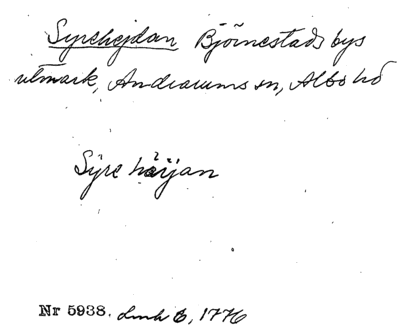 Syrehejdan Björnestads bys
utmark, Andrarums sn, Albo hd
Syre häijan
Nr 5938. Lmh 6, 1776